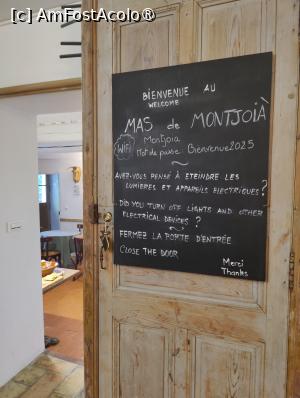 [c] AmFostAcolo®
BIENVENUE AU
WELCOME
MAS de MONTJOIÀ
WIFI Montjoia
Mot de passe: Bienvenue2025
AVEZ-VOUS PENSÉ À ETEINDRE LES
LUMIERES ET APPAREILS ELECTRIQUES?
DID YOU TURN OFF LIGHTS AND OTHER
ELECTRICAL DEVICES?
FERMEZ LA PORTE D'ENTRÉE
CLOSE THE DOOR
Merci
Thanks